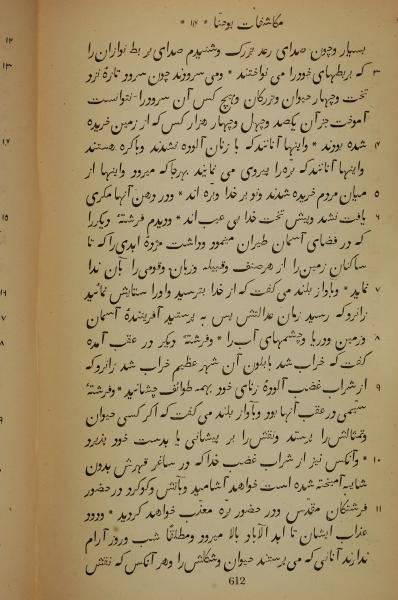 مکاشفات یوحنا * ۱۴ *
بسیار وچون صدای رعد بزرک وشنیدم صدای بر بط نوازان را
۳ که بربطهای خودرا می نواختند * ومی سرودند چون سرود تازهٔ نزد
تخت وچهار حیوان وبزرکان وهیچ کس آن سرودرا نتوانست
آموخت جز آن یکصد وچهل وچهار هزار کس که از زمین خریده
۴ شده بودند * واینها آنانند که با زنان آلوده نشدند وباکره هستند
واینها آنانند که بره را پیروی می نمایند بهرجا که میرود واینها از
۵ میان مردم خریده شدند ونوبر خدا وبره اند * ودر دهن آنها مکری
۶ یافت نشد وپیش تخت خدا بی عیب اند * ودیدم فرشتهٔ دیکررا
که در فضای آسمان طیران مینمود وداشت مژدهٔ ابدی را که تا
ساکنان زمین را از هرصنف وقبیله وزبان وقومی را بآن ندا
۷ نماید * وبآواز بلند می کفت که از خدا بترسید واورا ستایش نمائید
زانرو که رسید زمان عدالتش پس به پرستید آفرینندهٔ آسمان
۸ وزمین ودریا وچشمهای آب را * وفرشتهٔ دیکر در عقب آمده
کفت که خراب شد بابلون آن شهر عظیم خراب شد زانرو که
۹ از شراب غضب آلودهٔ زنای خود بهمه طوائف چشانید * وفرشتهٔ
سیمی در عقب آنها بود وبآواز بلند می کفت که اکر کسی حیوان
وتمثالش را پرستد ونقش را بر پیشانی یا بدست خود پذیرد
۱۰ * وآنکس نیز از شراب غضب خدا که در ساغر قهرش بدون
شایبه آمیخته شده است خواهد آشامید وبآتش وکوکرد در حضور
۱۱ فرشتکان مقدس ودر حضور بره معذب خواهد کردید * ودود
عذاب ایشان تا ابد الآباد بالا میرود ومطلقا شب وروز آرام
ندارند آنانی که می پرستند حیوان وشکلش را وهر آنکس که نقش
612